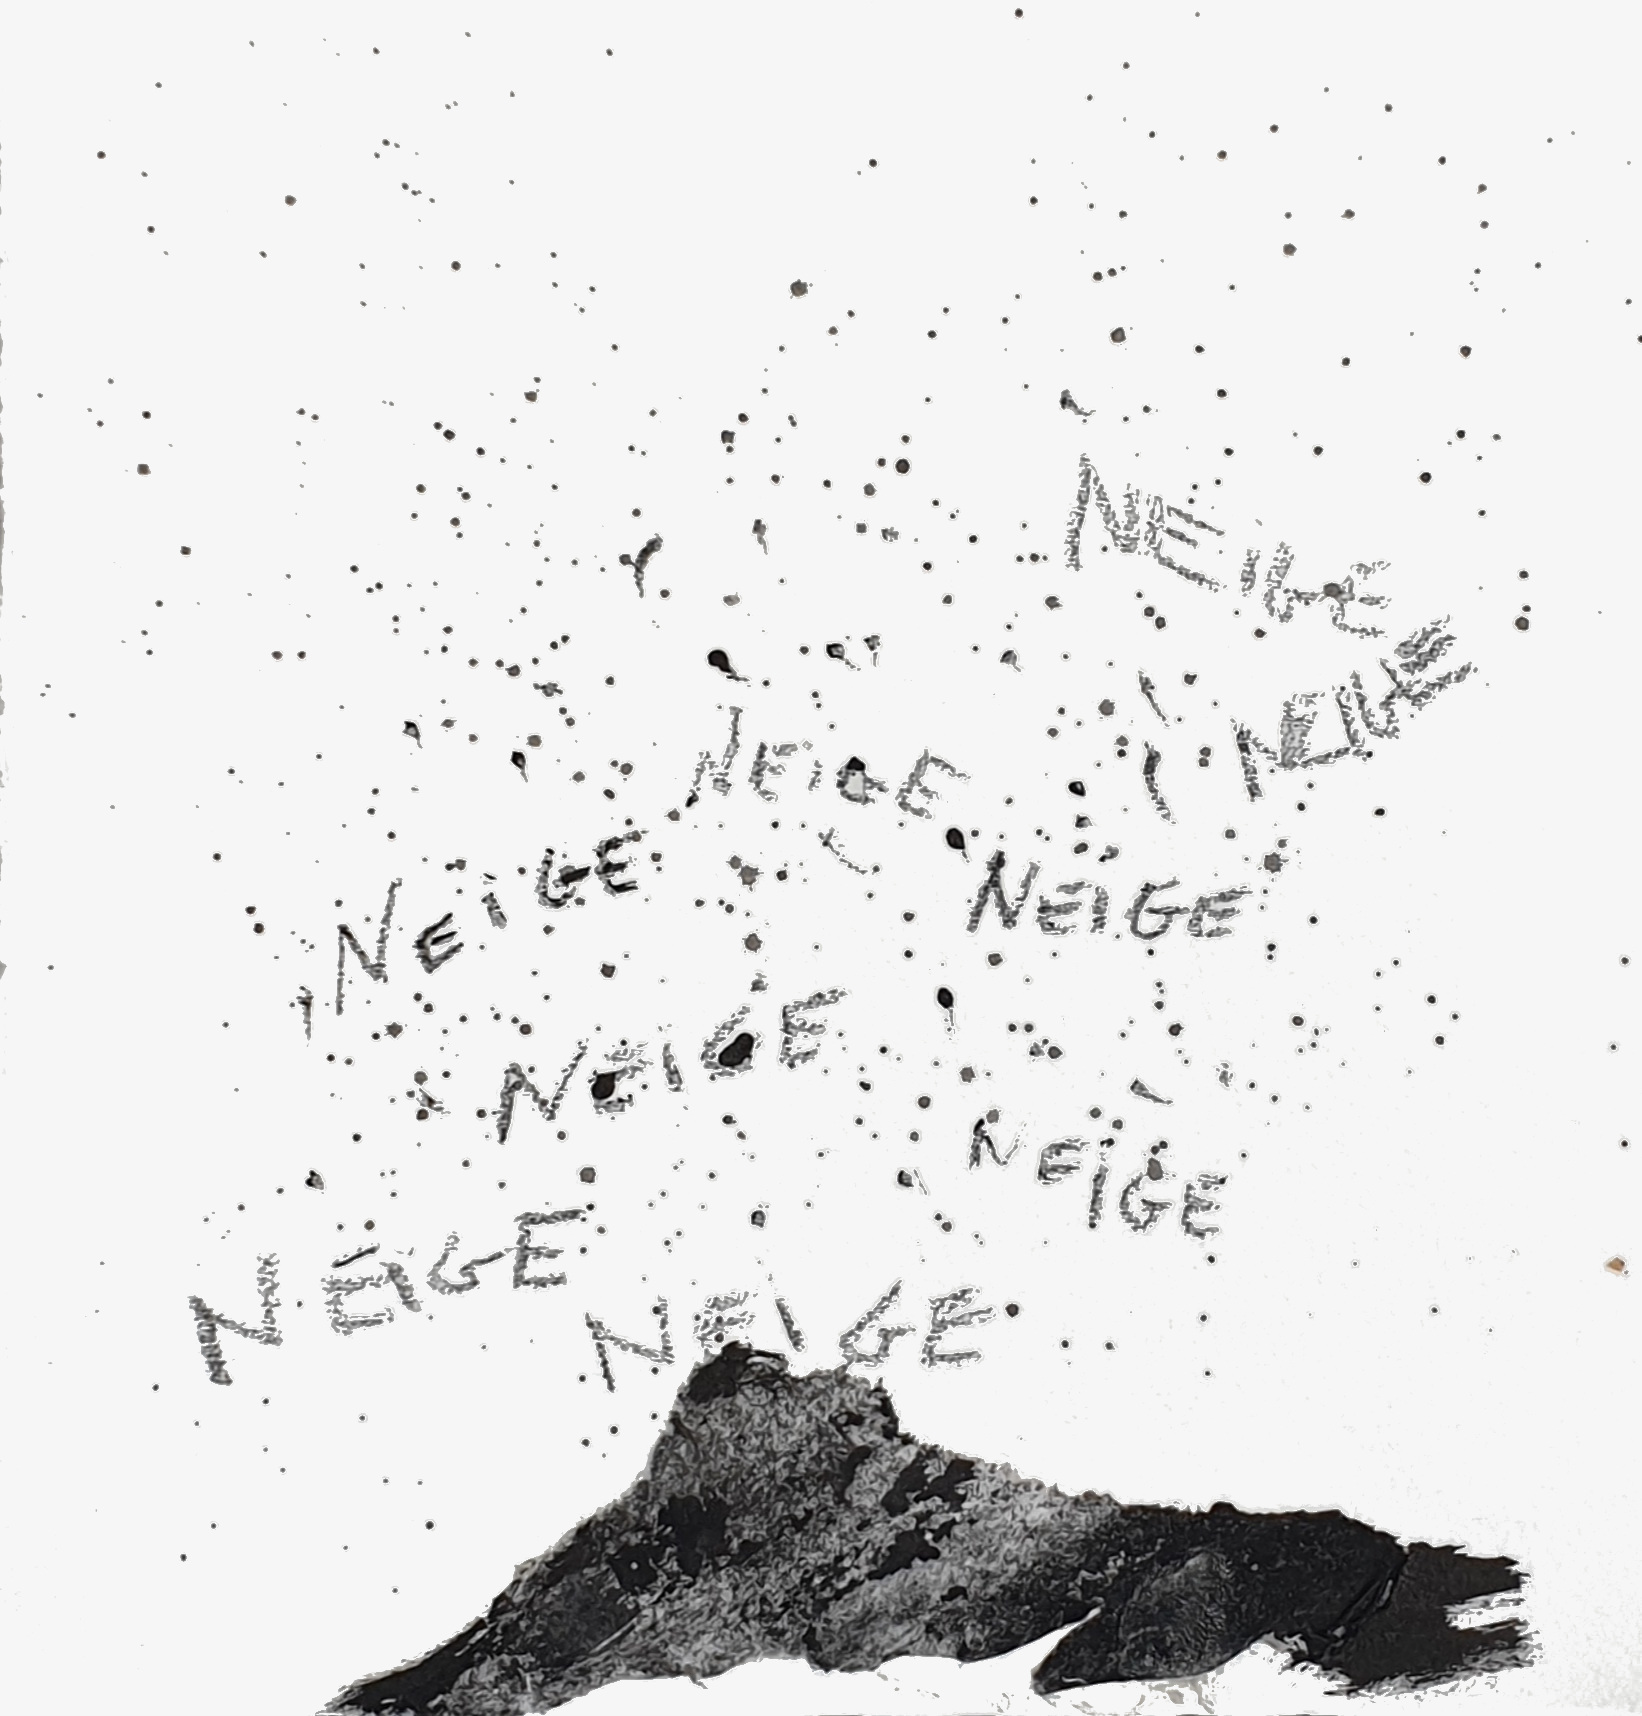 NEIGE
NEIGE
NEIGE
NEIGE
NEIGE
NEIGE
NEIGE
NEIGE
NEIGE